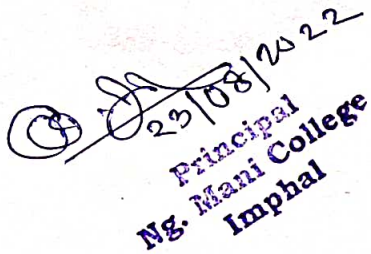 23/08/2022
Principal
Ng. Mani College
Imphal